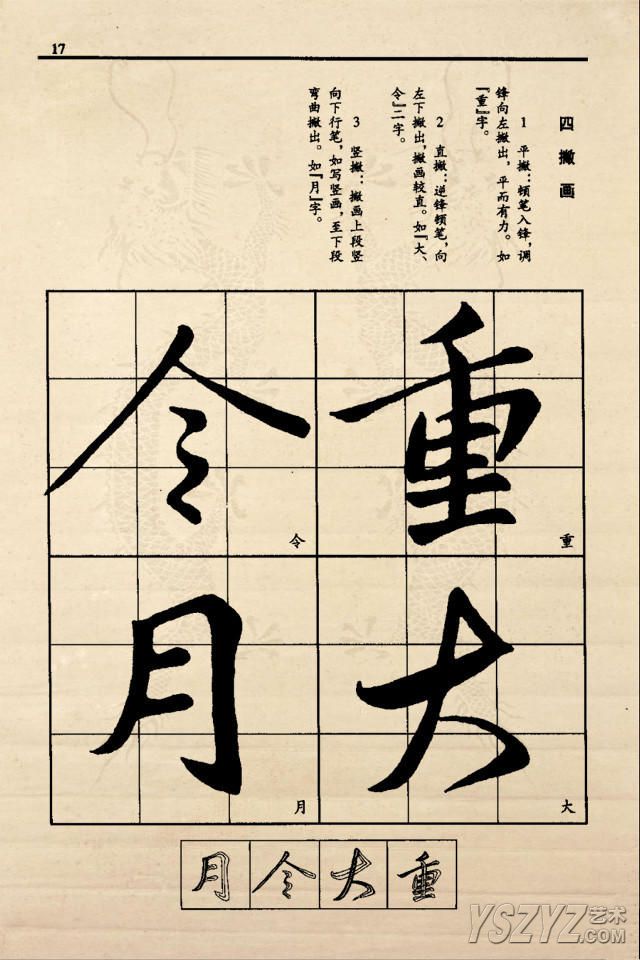 17
四 撇画
1 平撇：顿笔入锋，调
锋向左撇出，平而有力。如
『重』字。
2 直撇：逆锋顿笔，向
左下撇出，撇画较直。如『大、
令』二字。
3 竖撇：撇画上段竖
向下行笔，如写竖画，至下段
弯曲撇出。如『月』字。
重
重
大
大
令
令
月
月
月令大重
YSZYZ艺术
.COM